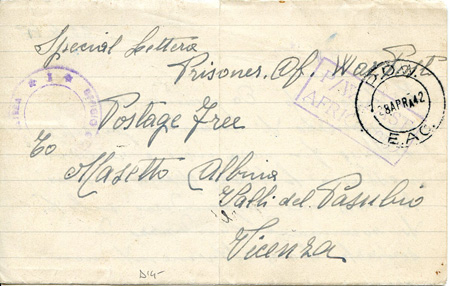 Special Lettera
Prisoner. Of. War Post
Postage Free
To
Masetto Albina
Valli del. Pasubio
Vicenza
P.O.W.
28 APR 42
E.A.C.
AFRIC
1
D14-